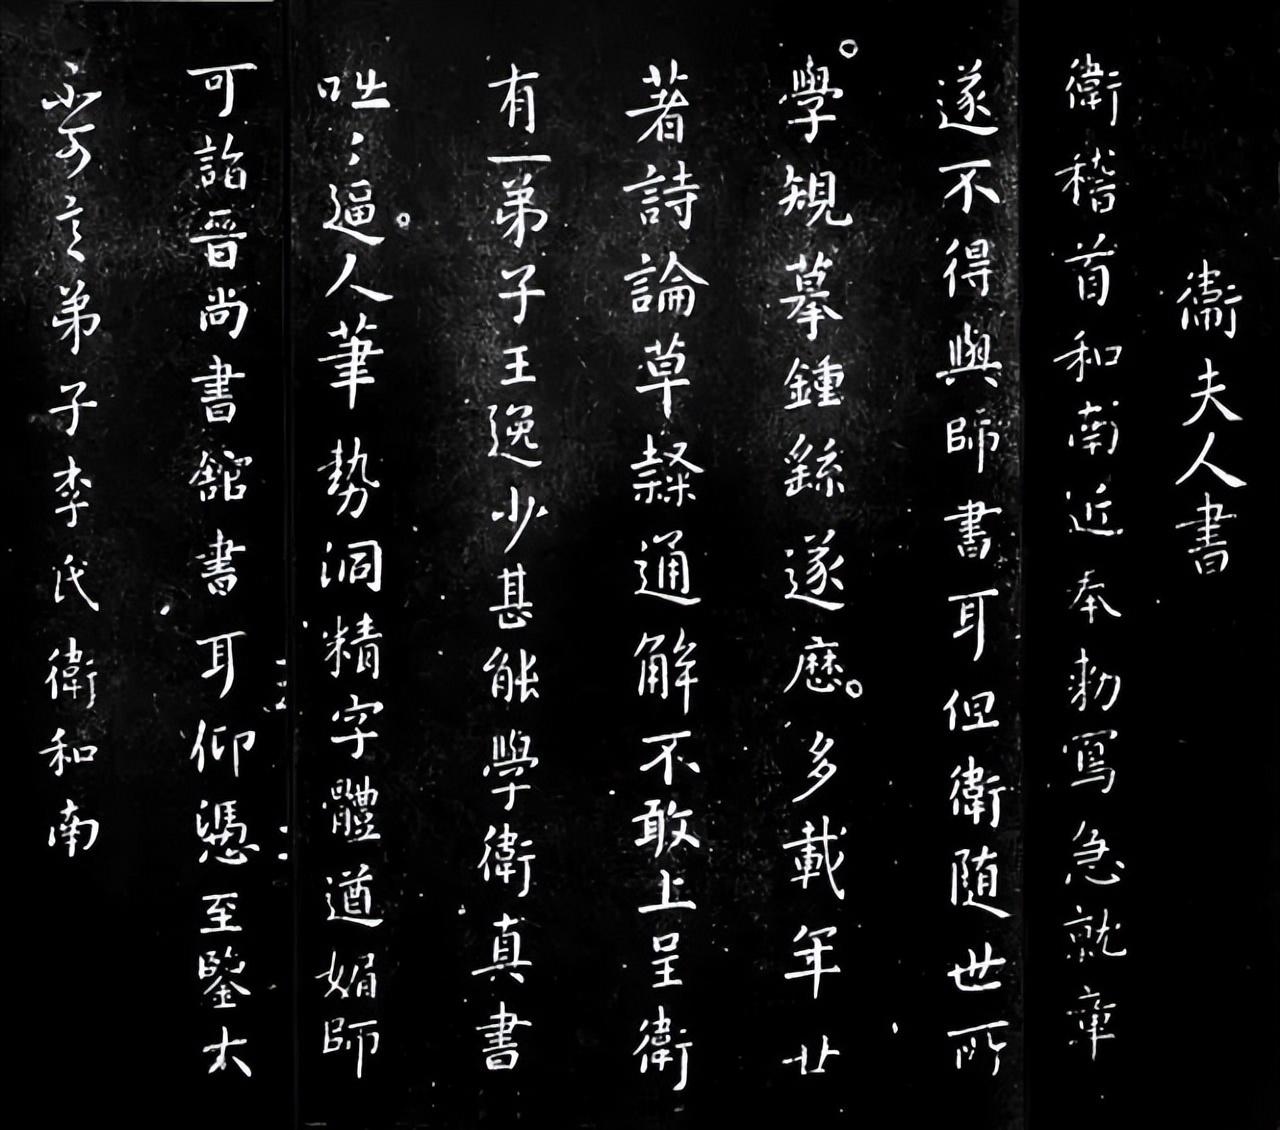 衛夫人書
衛稽首和南近奉勅寫急就章
遂不得與師書耳但衛随世所
學規摹鍾繇遂歷多載年廿
著詩論草隸通解不敢上呈衛
有一弟子王逸少甚能學衛真書
咄〻逼人筆勢洞精字體遒媚師
可詣晉尚書館書耳仰憑至鑒大
不可言弟子李氏衛和南